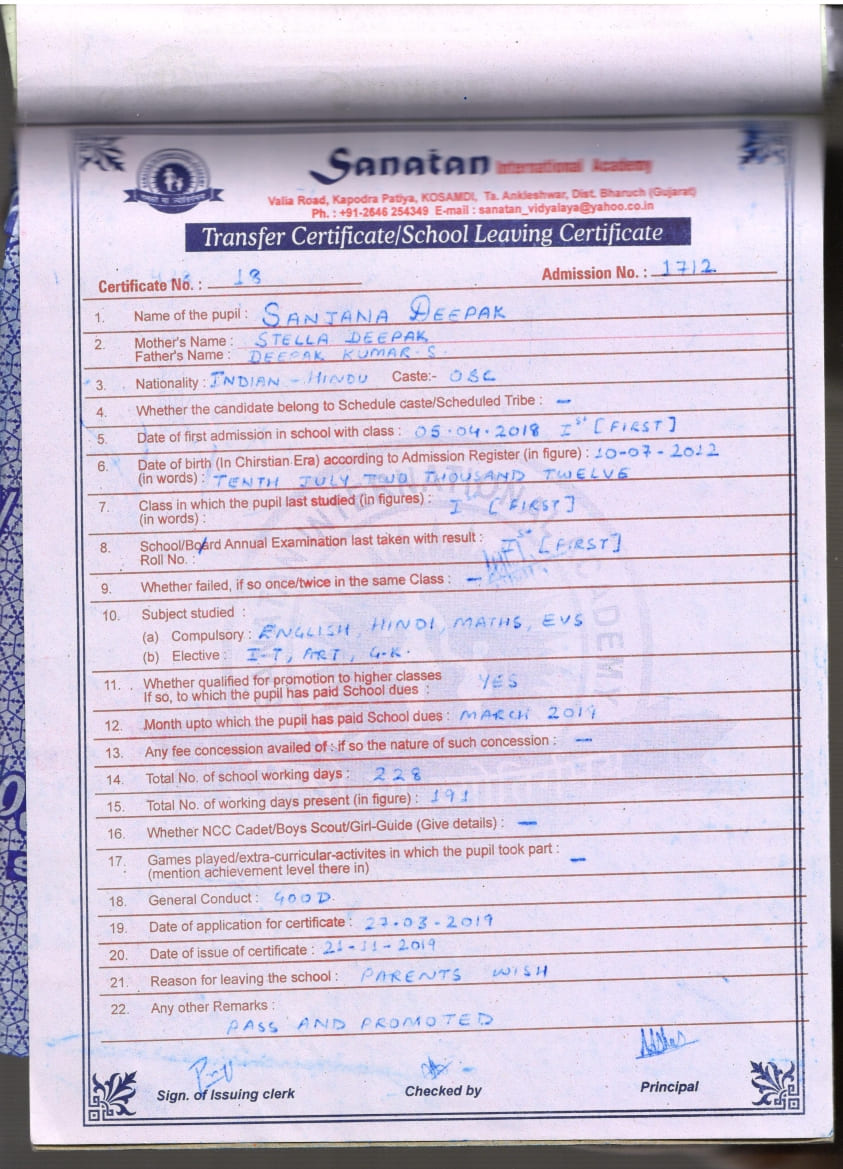 Sanatan International Academy
Valia Road, Kapodra Patiya, KOSAMDI, Ta. Ankleshwar, Dist. Bharuch (Gujarat)
Ph. : +91-2646 254349 E-mail : sanatan_vidyalaya@yahoo.co.in
Transfer Certificate/School Leaving Certificate
Certificate No. : 13
Admission No. : 1712
1. Name of the pupil : SANJANA DEEPAK
2. Mother's Name : STELLA DEEPAK
Father's Name : DEEPAK KUMAR. S.
3. Nationality : INDIAN - HINDU Caste:- OBC
4. Whether the candidate belong to Schedule caste/Scheduled Tribe : —
5. Date of first admission in school with class : 05.04.2018 Ist [FIRST]
6. Date of birth (In Chirstian Era) according to Admission Register (in figure) : 10-07-2012
(in words) : TENTH JULY TWO THOUSAND TWELVE
7. Class in which the pupil last studied (in figures) : I [FIRST]
(in words) :
8. School/Board Annual Examination last taken with result : Ist [FIRST]
Roll No. :
9. Whether failed, if so once/twice in the same Class : —
10. Subject studied :
(a) Compulsory : ENGLISH, HINDI, MATHS, EVS
(b) Elective : I-T, ART, G.K.
11. Whether qualified for promotion to higher classes YES
If so, to which the pupil has paid School dues :
12. Month upto which the pupil has paid School dues : MARCH 2019
13. Any fee concession availed of : if so the nature of such concession : —
14. Total No. of school working days : 228
15. Total No. of working days present (in figure) : 191
16. Whether NCC Cadet/Boys Scout/Girl-Guide (Give details) : —
17. Games played/extra-curricular-activites in which the pupil took part : —
(mention achievement level there in)
18. General Conduct : GOOD.
19. Date of application for certificate : 27-03-2019
20. Date of issue of certificate : 21-11-2019
21. Reason for leaving the school : PARENTS WISH
22. Any other Remarks :
PASS AND PROMOTED
Sign. of Issuing clerk
Checked by
Principal